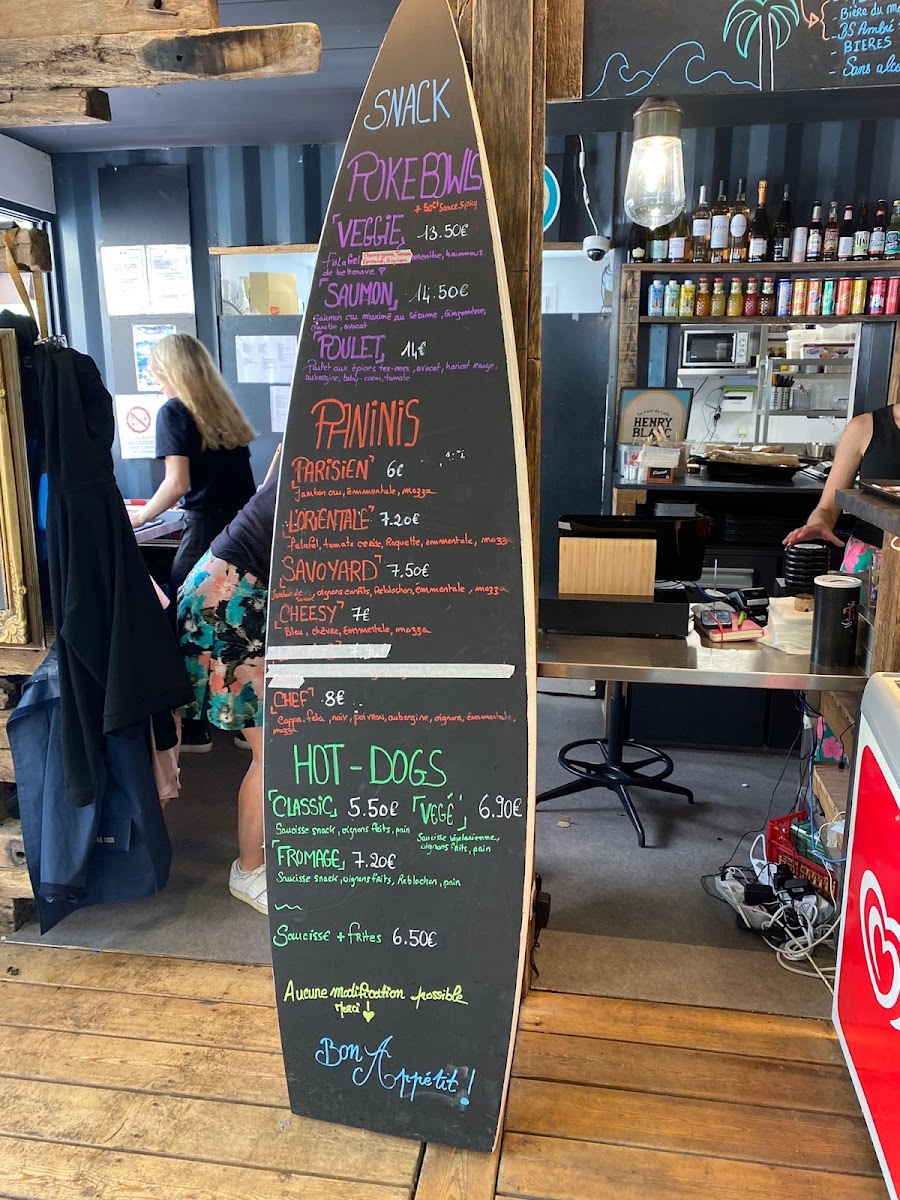 SNACK
POKEBOWLS
+ 50ct Sauce Spicy
VEGGIE 13.50€
falafel menthe, hummous
de betterave
SAUMON 14.50€
Saumon cru mariné au sésame, Gingembre,
carotte, avocat
POULET 14€
Poulet aux épices tex-mex, avocat, haricot rouge,
aubergine, baby-corn, tomate
PANINIS
PARISIEN 6€
Jambon cru, émmentale, mozza
L'ORIENTALE 7.20€
falafel, tomate cerise, Roquette, émmentale, mozza
SAVOYARD 7.50€
Jambon de oignons confits, Reblochon, émmentale, mozza
CHEESY 7€
Bleu, chèvre, émmentale, mozza
CHEF 8€
Coppa, feta, noix, poivron, aubergine, oignons, émmentale,
mozza
HOT-DOGS
CLASSIC 5.50€ VEGÉ 6.90€
Saucisse snack, oignons frits, pain
Saucisse végétarienne,
oignons frits, pain
FROMAGE 7.20€
Saucisse snack, oignons frits, Reblochon, pain
Saucisse + frites 6.50€
Aucune modification possible
Merci !
Bon Appétit !
- Bière du
- BS Ambré
- BIERES
- Sans alco
HENRY